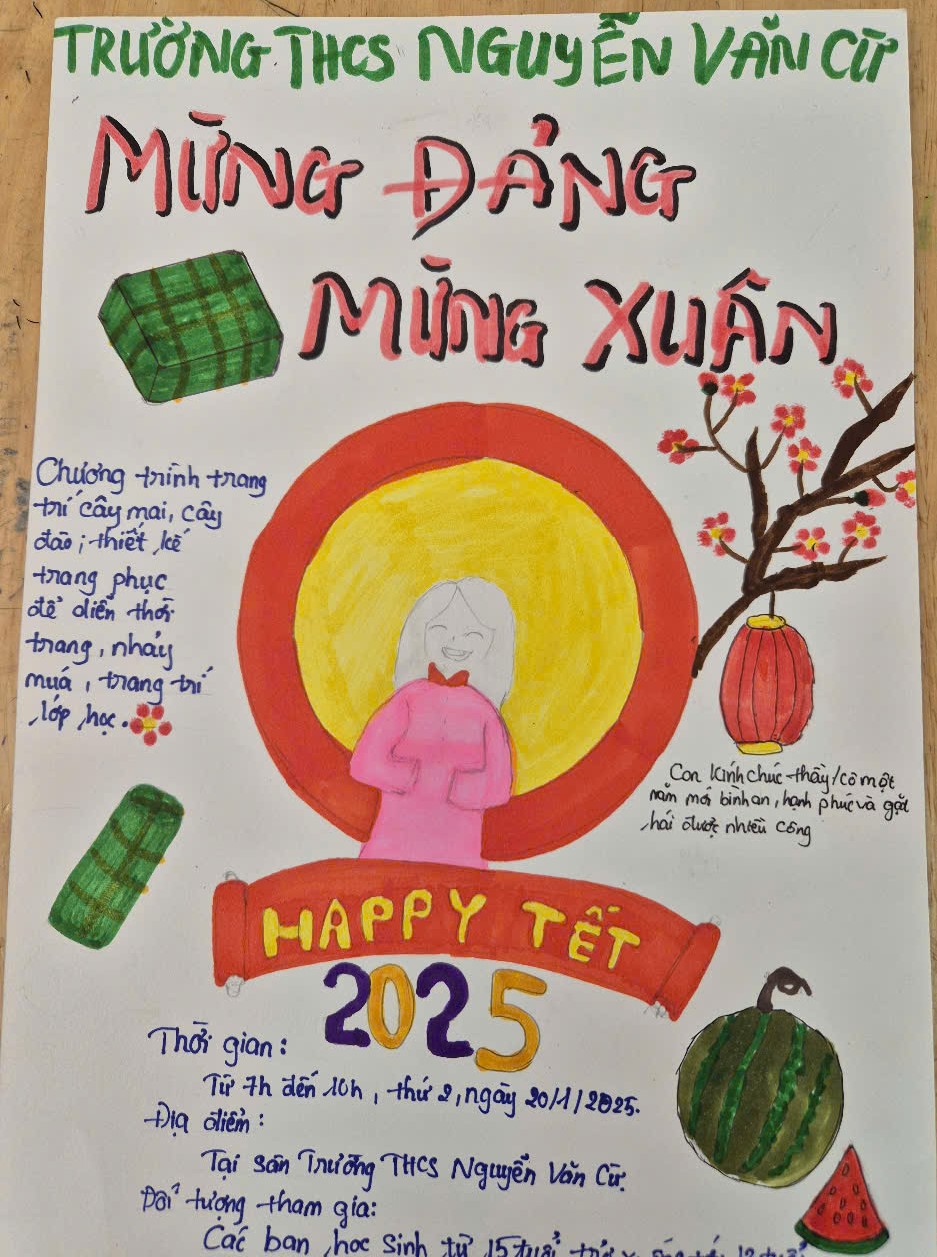 TRƯỜNG THCS NGUYỄN VĂN CỪ
MỪNG ĐẢNG
MỪNG XUÂN
Chương trình trang
trí cây mai, cây
đào; thiết kế
trang phục
để diễn thời
trang, nhảy
múa, trang trí
lớp học.
Con kính chúc thầy/cô một
năm mới bình an, hạnh phúc và gặt
hái được nhiều công
HAPPY TẾT
2025
Thời gian:
Từ 7h đến 10h, thứ 2, ngày 20/1/2025.
Địa điểm:
Tại sân Trường THCS Nguyễn Văn Cừ.
Đối tượng tham gia:
Các bạn học sinh từ 15 tuổi